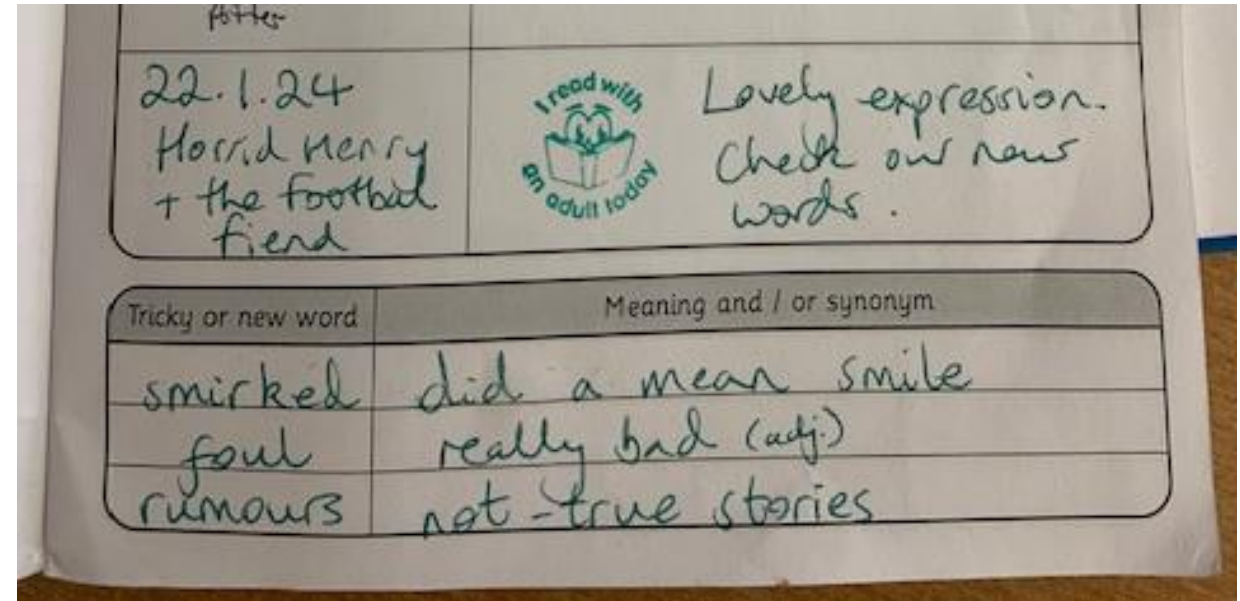 potter
22.1.24
Horrid Henry
+ the football
fiend
I read with
an adult today
Lovely expression.
Check our news
words.
Tricky or new word
Meaning and / or synonym
smirked
did a mean smile
foul
really bad (adj.)
rumours
not-true stories